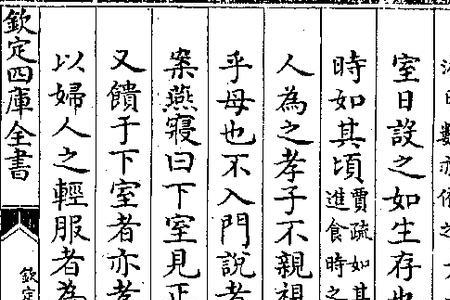 日數亦依之
室日設之如生存也
時如其頃賈疏如其
進食時之
人為之孝子不親視
乎母也不入門說者
案燕寢曰下室見正
又饋于下室者亦孝
以婦人之輕服者為
欽定四庫全書
欽定